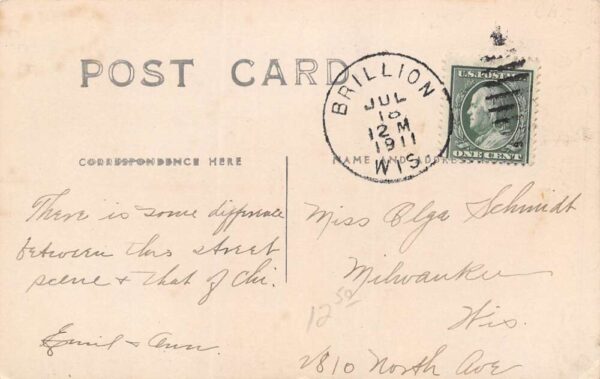 POST CARD
BRILLION
JUL
18
12 M
1911
WIS.
U.S. POSTAGE
ONE CENT
CORRESPONDENCE HERE
NAME AND ADDRESS
There is some difference
between this street
scene & that of Chi.
Emil & Ann.
Miss Olga Schmidt
Milwaukee
Wis.
2810 North Ave
12 50